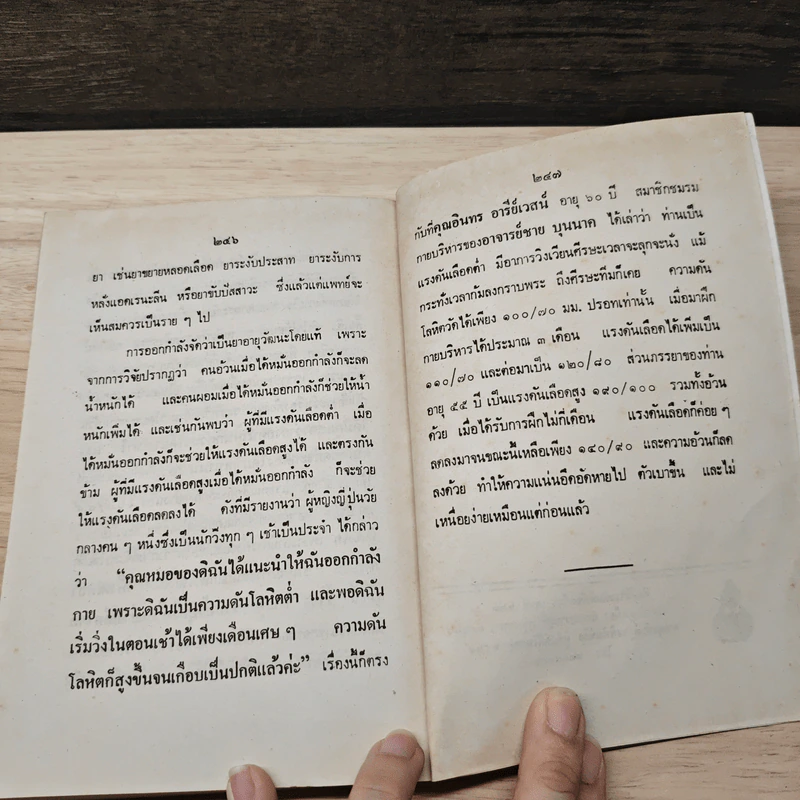 ๒๔๖
ยา เช่นยาขยายหลอดเลือด ยาระงับประสาท ยาระงับการ
หลั่งแอดเรนะลีน หรือยาขับปัสสาวะ ซึ่งแล้วแต่แพทย์จะ
เห็นสมควรเป็นราย ๆ ไป
การออกกำลังจัดว่าเป็นยาอายุวัฒนะโดยแท้ เพราะ
จากการวิจัยปรากฏว่า คนอ้วนเมื่อได้หมั่นออกกำลังก็จะลด
น้ำหนักได้ และคนผอมเมื่อได้หมั่นออกกำลังก็ช่วยให้น้ำ
หนักเพิ่มได้ และเช่นกันพบว่า ผู้ที่มีแรงดันเลือดต่ำ เมื่อ
ได้หมั่นออกกำลังก็จะช่วยให้แรงดันเลือดสูงได้ และตรงกัน
ข้าม ผู้ที่มีแรงดันเลือดสูงเมื่อได้หมั่นออกกำลัง ก็จะช่วย
ให้แรงดันเลือดลดลงได้ ดังที่มีรายงานว่า ผู้หญิงญี่ปุ่นวัย
กลางคน ๆ หนึ่งซึ่งเป็นนักวิ่งทุก ๆ เช้าเป็นประจำ ได้กล่าว
ว่า “คุณหมอของดิฉันได้แนะนำให้ฉันออกกำลัง
กาย เพราะดิฉันเป็นความดันโลหิตต่ำ และพอดิฉัน
เริ่มวิ่งในตอนเช้าได้เพียงเดือนเศษ ๆ ความดัน
โลหิตก็สูงขึ้นจนเกือบเป็นปกติแล้วค่ะ” เรื่องนี้ก็ตรง
๒๔๗
กับที่คุณอินทร อารีย์เวสน์ อายุ ๖๐ ปี สมาชิกชมรม
กายบริหารของอาจารย์ชาย บุนนาค ได้เล่าว่า ท่านเป็น
แรงดันเลือดต่ำ มีอาการวิงเวียนศีรษะเวลาจะลุกจะนั่ง แม้
กระทั่งเวลาก้มลงกราบพระ ถึงศีรษะทิ่มก็เคย ความดัน
โลหิตวัดได้เพียง ๑๐๐/๗๐ มม. ปรอทเท่านั้น เมื่อมาฝึก
กายบริหารได้ประมาณ ๓ เดือน แรงดันเลือดได้เพิ่มเป็น
๑๑๐/๗๐ และต่อมาเป็น ๑๒๐/๘๐ ส่วนภรรยาของท่าน
อายุ ๕๕ ปี เป็นแรงดันเลือดสูง ๑๙๐/๑๐๐ รวมทั้งอ้วน
ด้วย เมื่อได้รับการฝึกไม่กี่เดือน แรงดันเลือดก็ค่อย ๆ
ลดลงมาจนขณะนี้เหลือเพียง ๑๔๐/๙๐ และความอ้วนก็ลด
ลงด้วย ทำให้ความแน่นอึดอัดหายไป ตัวเบาขึ้น และไม่
เหนื่อยง่ายเหมือนแต่ก่อนแล้ว